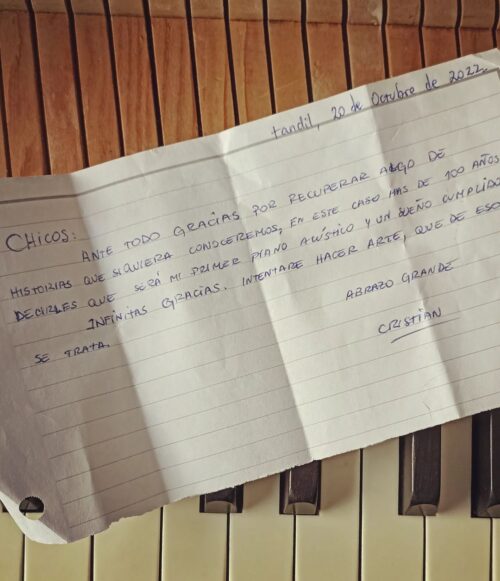 tandil, 20 de Octubre de 2022.
CHICOS:
ANTE TODO GRACIAS POR RECUPERAR ALGO DE
HISTORIAS QUE SIQUIERA CONOCEREMOS, EN ESTE CASO MAS DE 100 AÑOS
DECIRLES QUE SERÁ MI PRIMER PIANO ACÚSTICO Y UN SUEÑO CUMPLIDO
INFINITAS GRACIAS. INTENTARE HACER ARTE, QUE DE ESO
SE TRATA.
ABRAZO GRANDE
CRISTIAN